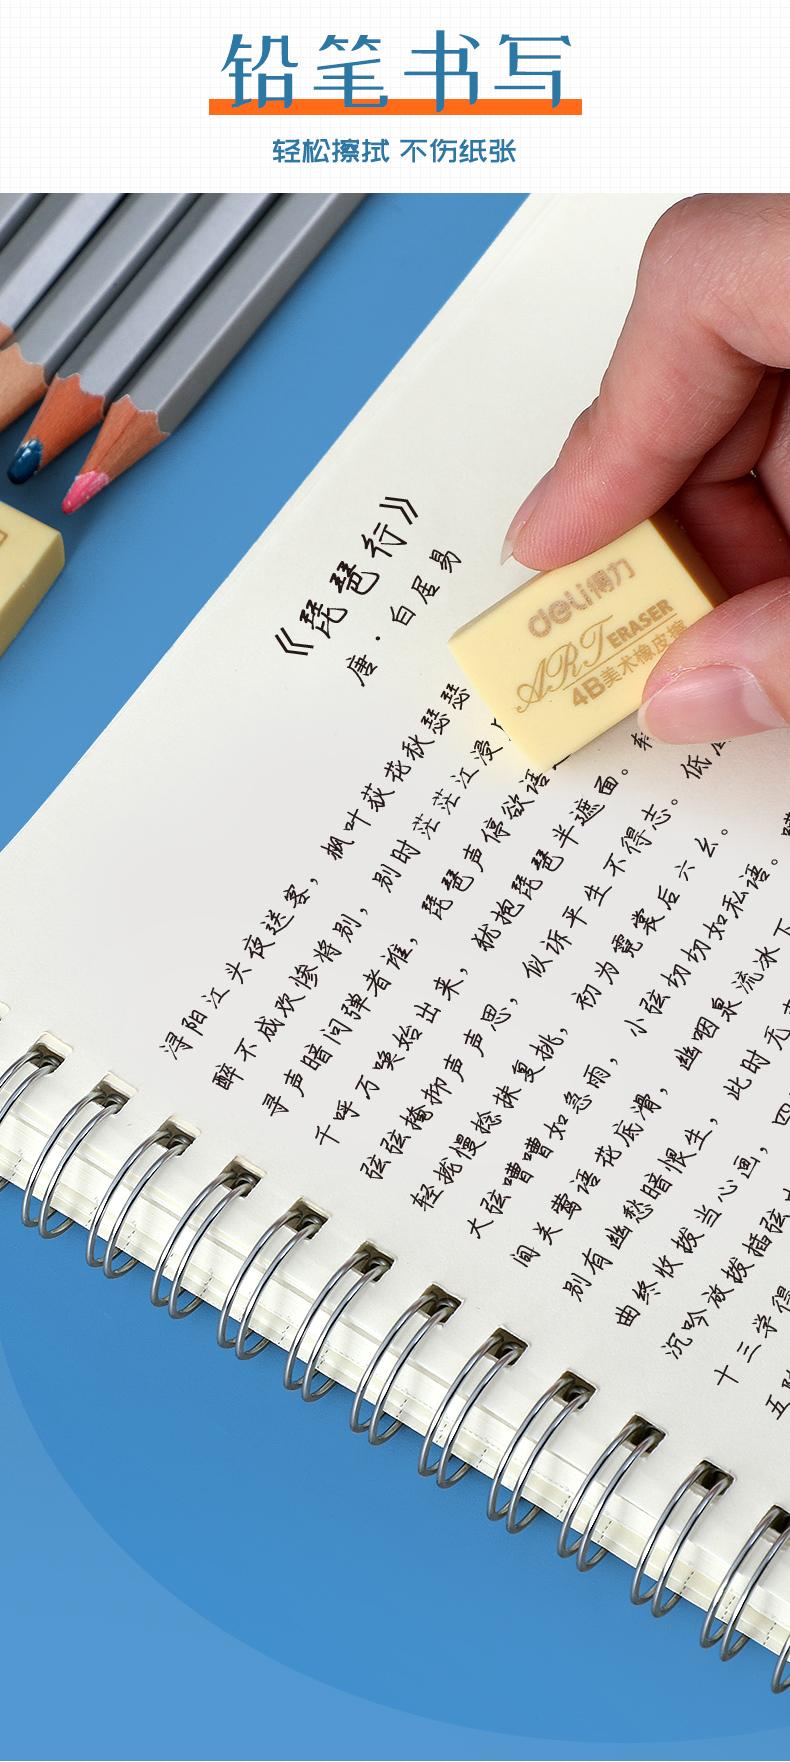 铅笔书写
轻松擦拭 不伤纸张
《琵琶行》
唐·白居易
deli得力
ART ERASER
4B美术橡皮擦
浔阳江头夜送客，枫叶荻花秋瑟瑟
醉不成欢惨将别，别时茫茫江浸
寻声暗问弹者谁，琵琶声停欲语
千呼万唤始出来，犹抱琵琶半遮面。转
弦弦掩抑声声思，似诉平生不得志。低
轻拢慢捻抹复挑，初为霓裳后六幺。
大弦嘈嘈如急雨，小弦切切如私语。
间关莺语花底滑，幽咽泉流冰下
别有幽愁暗恨生，此时无
曲终收拨当心画，四
沉吟放拨插弦
十三学得
五